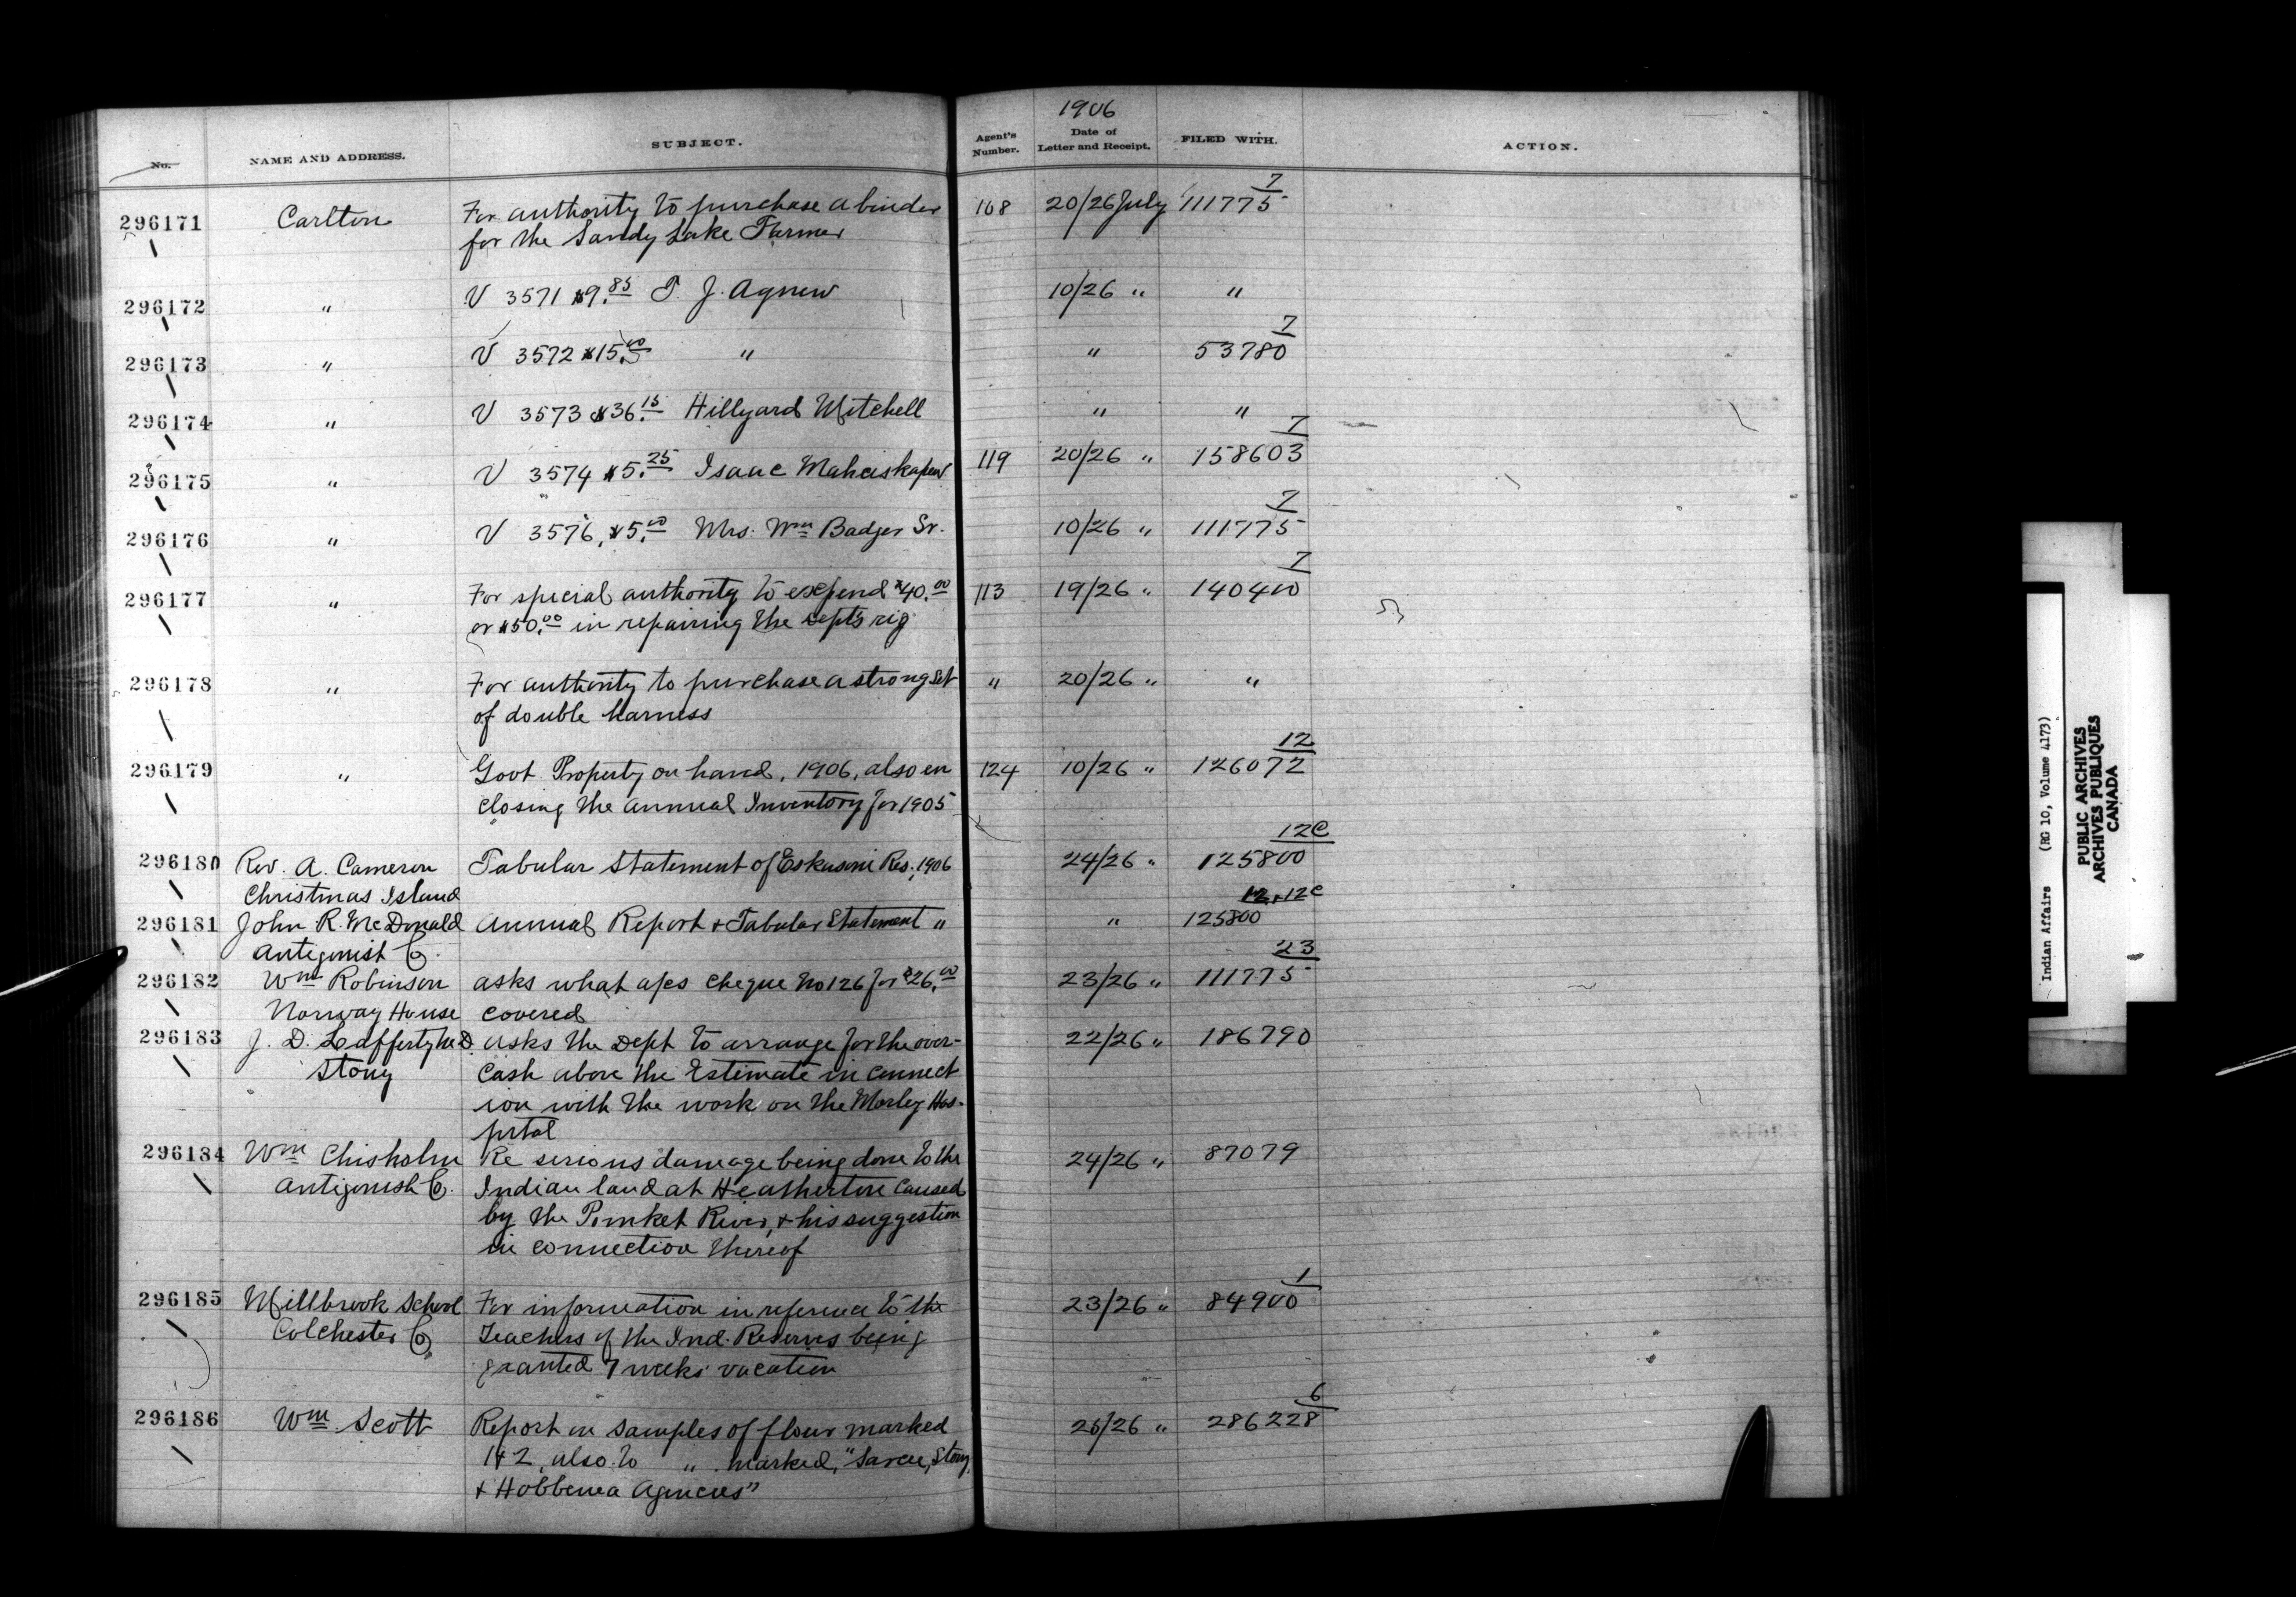 1906
No. NAME AND ADDRESS. SUBJECT. Agent's Number. Date of Letter and Receipt. FILED WITH. ACTION.
296171 Carlton For authority to purchase a binder 108 20/26 July 111775 7
for the Sandy Lake Farmer
296172 " V 3571 $9.85 T. J. Agnew 10/26 " "
296173 " V 3572 $15.00 " " 53780 7
296174 " V 3573 $36.15 Hillyard Mitchell " "
296175 " V 3574 $5.25 Isaac 119 20/26 " 158603 7
296176 " V 3576, $5.00 Mrs. Wm Badger Sr. 10/26 " 111775 7
296177 " For special authority to expend $40.00 113 19/26 " 140400 7
or $50.00 in repairing the Dept's rig
296178 " For authority to purchase a strong set " 20/26 " "
of double harness
296179 " Govt Property on hand, 1906, also en 124 10/26 " 126072 12
closing the annual Inventory for 1905
296180 Rev. A. Cameron Tabular Statement of Eskasoni Res., 1906 24/26 " 125800 12C
Christmas Island
296181 John R. McDonald Annual Report + Tabular Statement " " 125800 12+12C
Antigonist Co.
296182 Wm Robinson asks what a/cs cheque No 126 for $26.00 23/26 " 111775 23
Norway House covered
296183 J. D. Lafferty M.D. asks the Dept to arrange for the over-
22/26 " 186790
Stony Cash above the Estimate in connect
ion with the work on the Morley Hos-
pital
296184 Wm Chisholm Re serious damage being done to the 24/26 " 87079
Antigonish Co. Indian land at Heatherton caused
by the Pomket River, + his suggestion
in connection thereof
296185 Millbrook School For information in reference to the 23/26 " 84900 1
Colchester Co. Teachers of the Ind. Reserves being
granted 7 weeks vacation
296186 Wm Scott Report on samples of flour marked /26 " 286228 6
1+2, also to " marked, "Sarcee, Stony,
+ Hobbema Agencies"
Indian Affairs (RG 10, Volume 4173)
PUBLIC ARCHIVES
ARCHIVES PUBLIQUES
CANADA